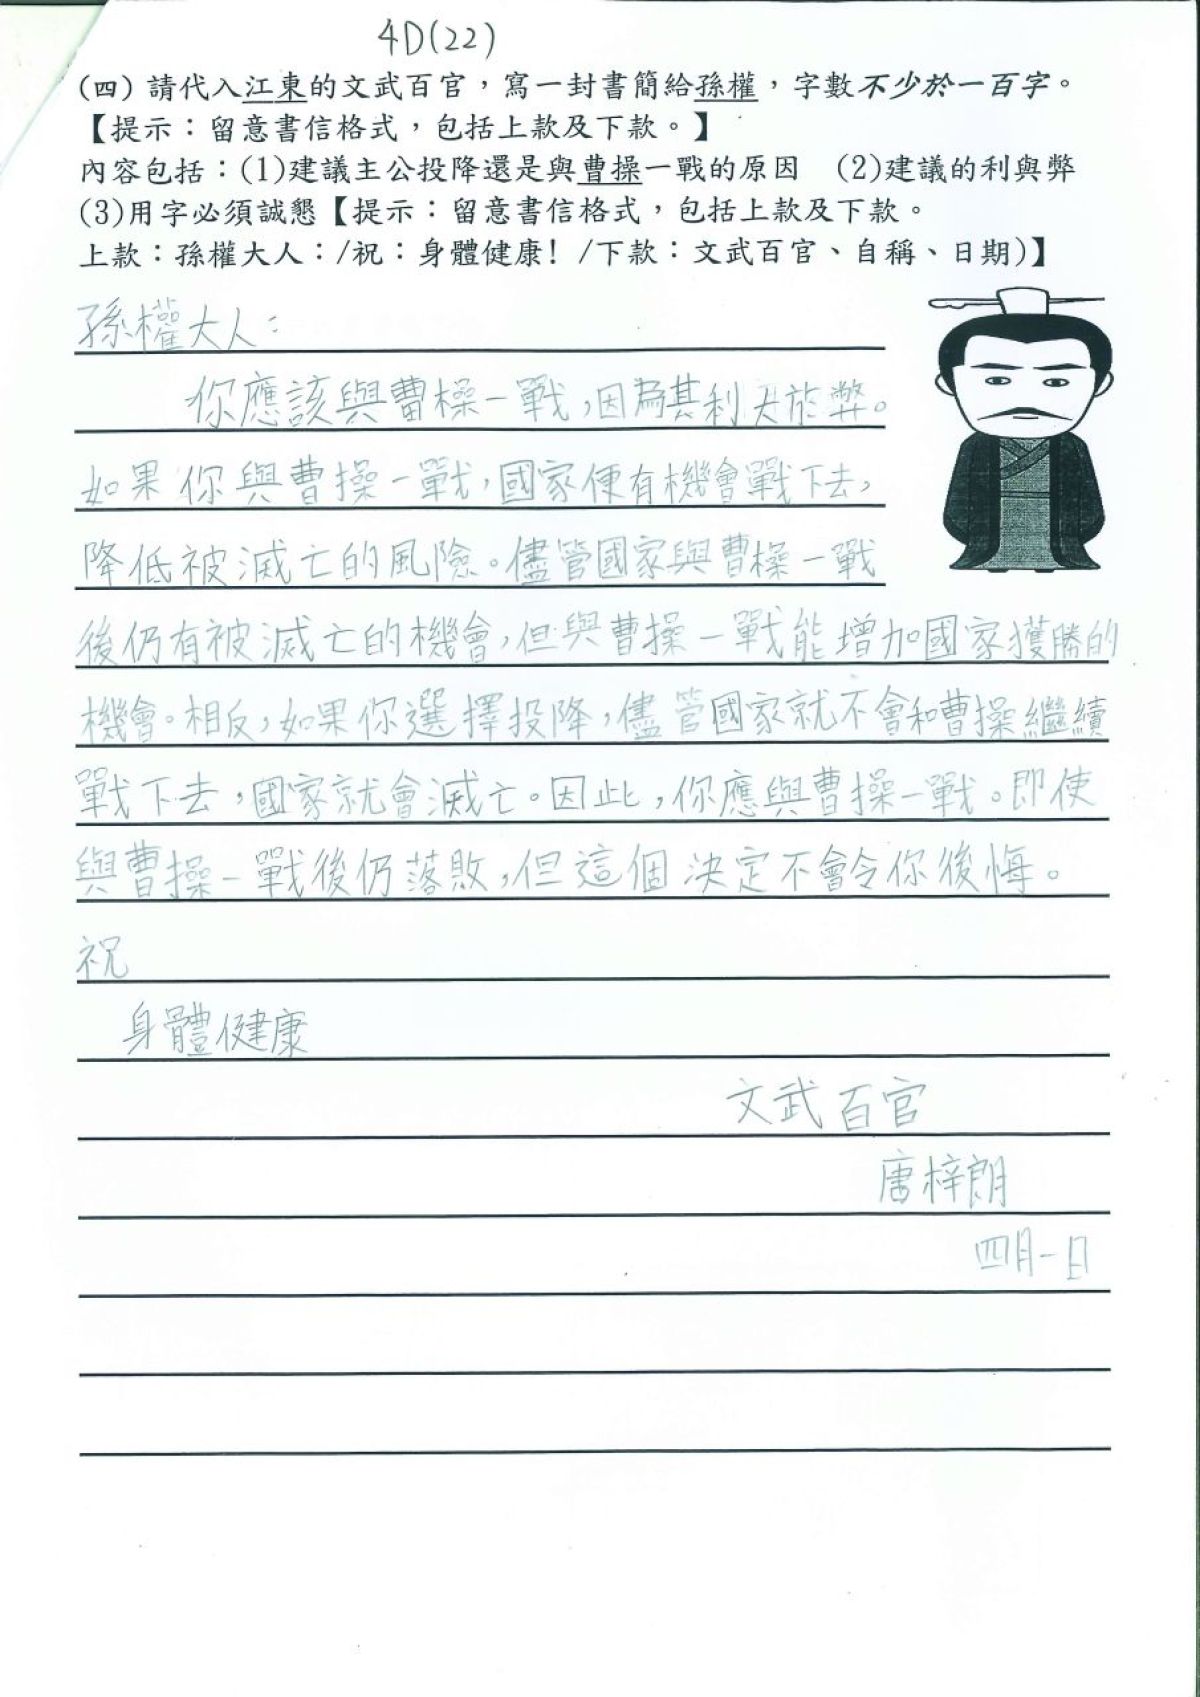 4D(22)
(四) 請代入江東的文武百官，寫一封書簡給孫權，字數不少於一百字。
【提示：留意書信格式，包括上款及下款。】
內容包括：(1)建議主公投降還是與曹操一戰的原因 (2)建議的利與弊
(3)用字必須誠懇【提示：留意書信格式，包括上款及下款。
上款：孫權大人：/祝：身體健康! /下款：文武百官、自稱、日期)】
孫權大人：
你應該與曹操一戰，因為其利大於弊。
如果你與曹操一戰，國家便有機會戰下去，
降低被滅亡的風險。儘管國家與曹操一戰
後仍有被滅亡的機會，但與曹操一戰能增加國家獲勝的
機會。相反，如果你選擇投降，儘管國家就不會和曹操繼續
戰下去，國家就會滅亡。因此，你應與曹操一戰。即使
與曹操一戰後仍落敗，但這個決定不會令你後悔。
祝
身體健康
文武百官
唐梓朗
四月一日